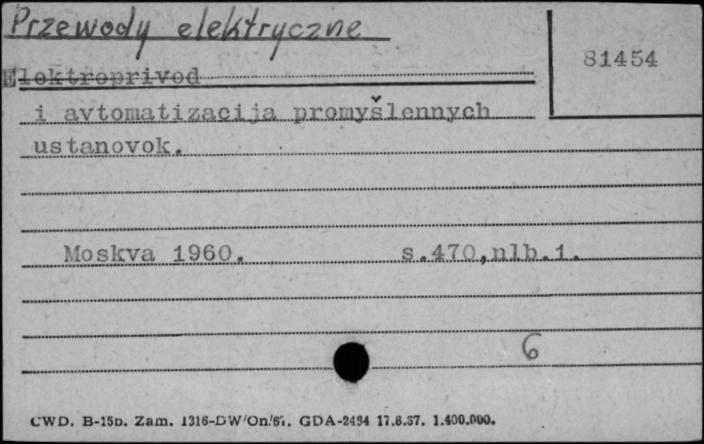 Przewody elektryczne
81454
Elektroprivod
i avtomatizacija promyšlennych
ustanovok.
Moskva 1960. s.470,nlb.1.
6
CWD. B-15b. Zam. 1316-DW/On/67. GDA-2484 17.8.57. 1.400.000.